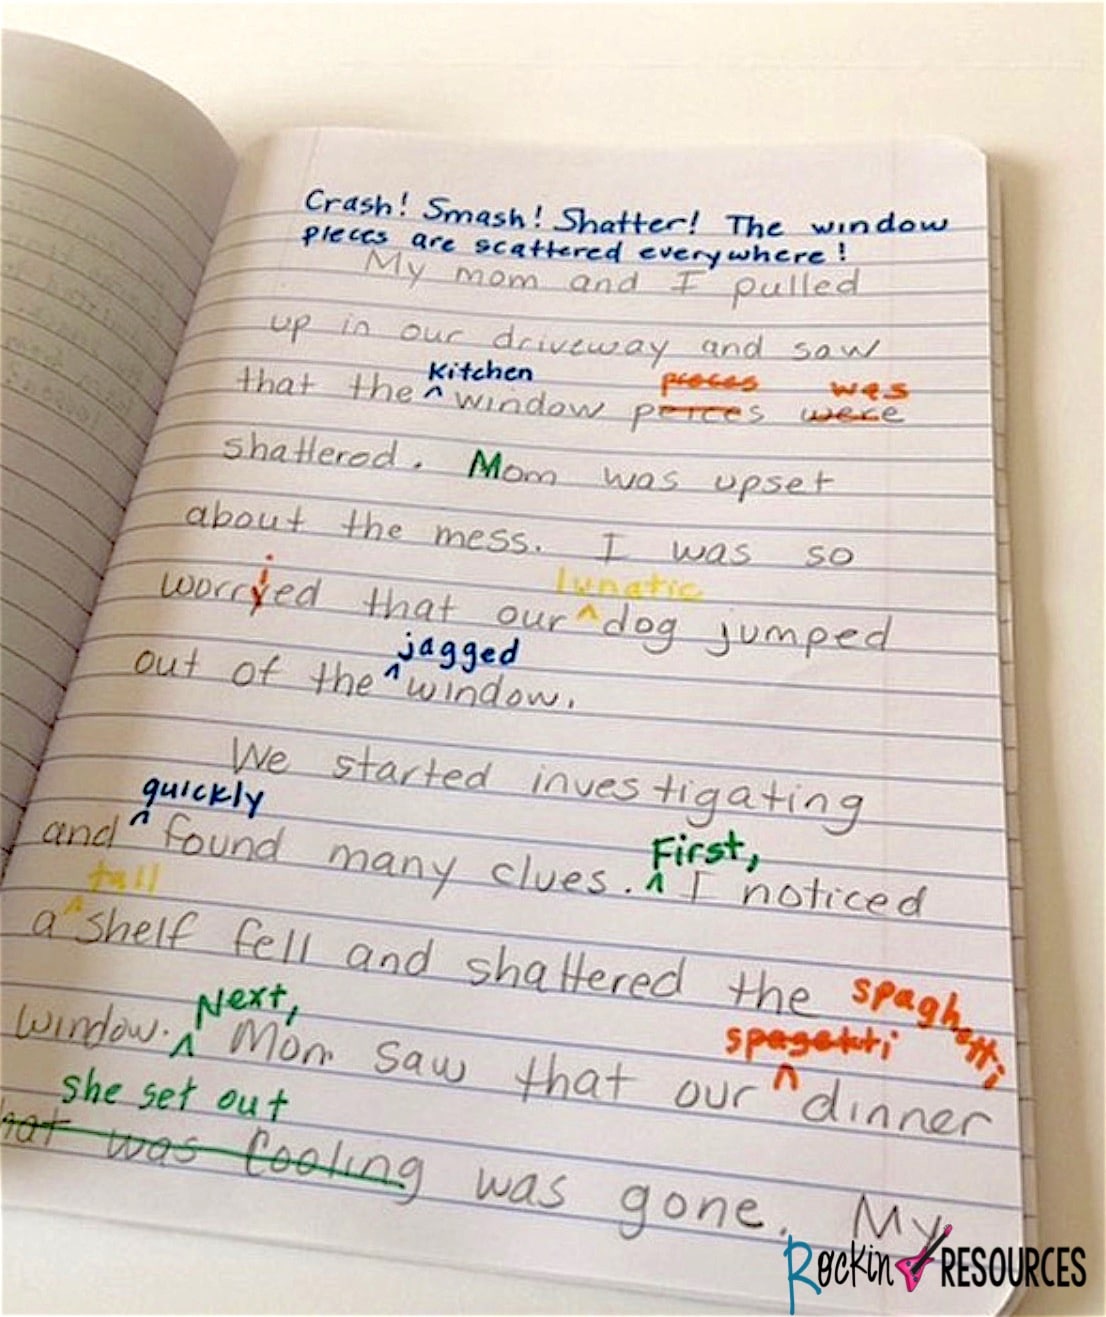 Crash! Smash! Shatter! The window
pieces are scattered everywhere!
My mom and I pulled
up in our driveway and saw
Kitchen pieces was
that the ^ window peices were
shattered. Mom was upset
about the mess. I was so
i lunatic
worryed that our ^ dog jumped
jagged
out of the ^ window.
We started investigating
quickly
and ^ found many clues. ^ I noticed
First,
tall
a ^ shelf fell and shattered the
Next, spagetti spaghetti
window. ^ Mom saw that our ^ dinner
she set out
hat was cooling was gone. My
Rockin RESOURCES